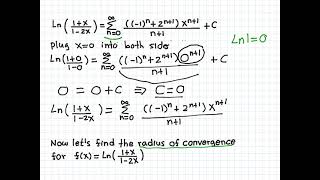 Ln(1+x/1-2x) = ∞∑n=0 ((-1)^n + 2^{n+1}) x^{n+1}/n+1 + C
Ln1=0
plug x=0 into both side
Ln(1+0/1-0) = ∞∑n=0 ((-1)^n + 2^{n+1}) 0^{n+1}/n+1 + C
0 = 0 + C ⇒ C=0
Ln(1+x/1-2x) = ∞∑n=0 ((-1)^n + 2^{n+1}) x^{n+1}/n+1
Now let's find the radius of convergence
for f(x) = Ln(1+x/1-2x)